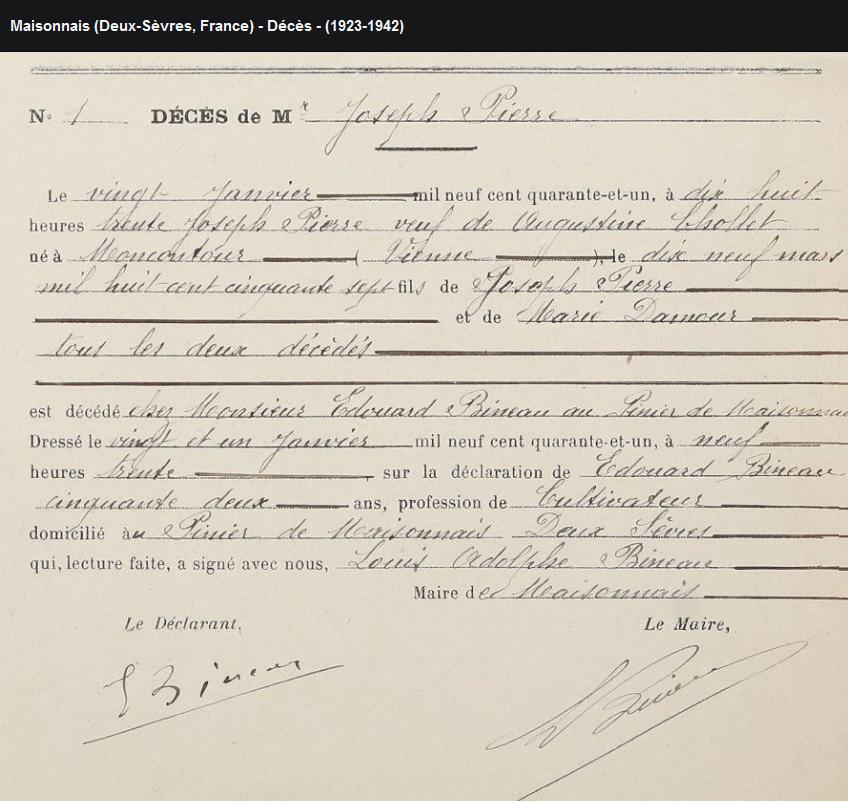 Maisonnais (Deux-Sèvres, France) - Décès - (1923-1942)
No 1 DÉCÈS de Mr Joseph Pierre
Le vingt Janvier mil neuf cent quarante-et-un, à dix huit
heures trente Joseph Pierre veuf de Augustine Chollet
né à Moncontour ( Vienne ), le dix neuf mars
mil huit cent cinquante sept fils de Joseph Pierre
et de Marie Damour
tous les deux décédés
est décédé chez Monsieur Edouard Bineau au Pinier de Maisonnais
Dressé le vingt et un Janvier mil neuf cent quarante-et-un, à neuf
heures trente sur la déclaration de Edouard Bineau
cinquante deux ans, profession de Cultivateur
domicilié au Pinier de Maisonnais Deux Sèvres
qui, lecture faite, a signé avec nous, Louis Adolphe Bineau
Maire de Maisonnais
Le Déclarant, Le Maire,
E Bineau